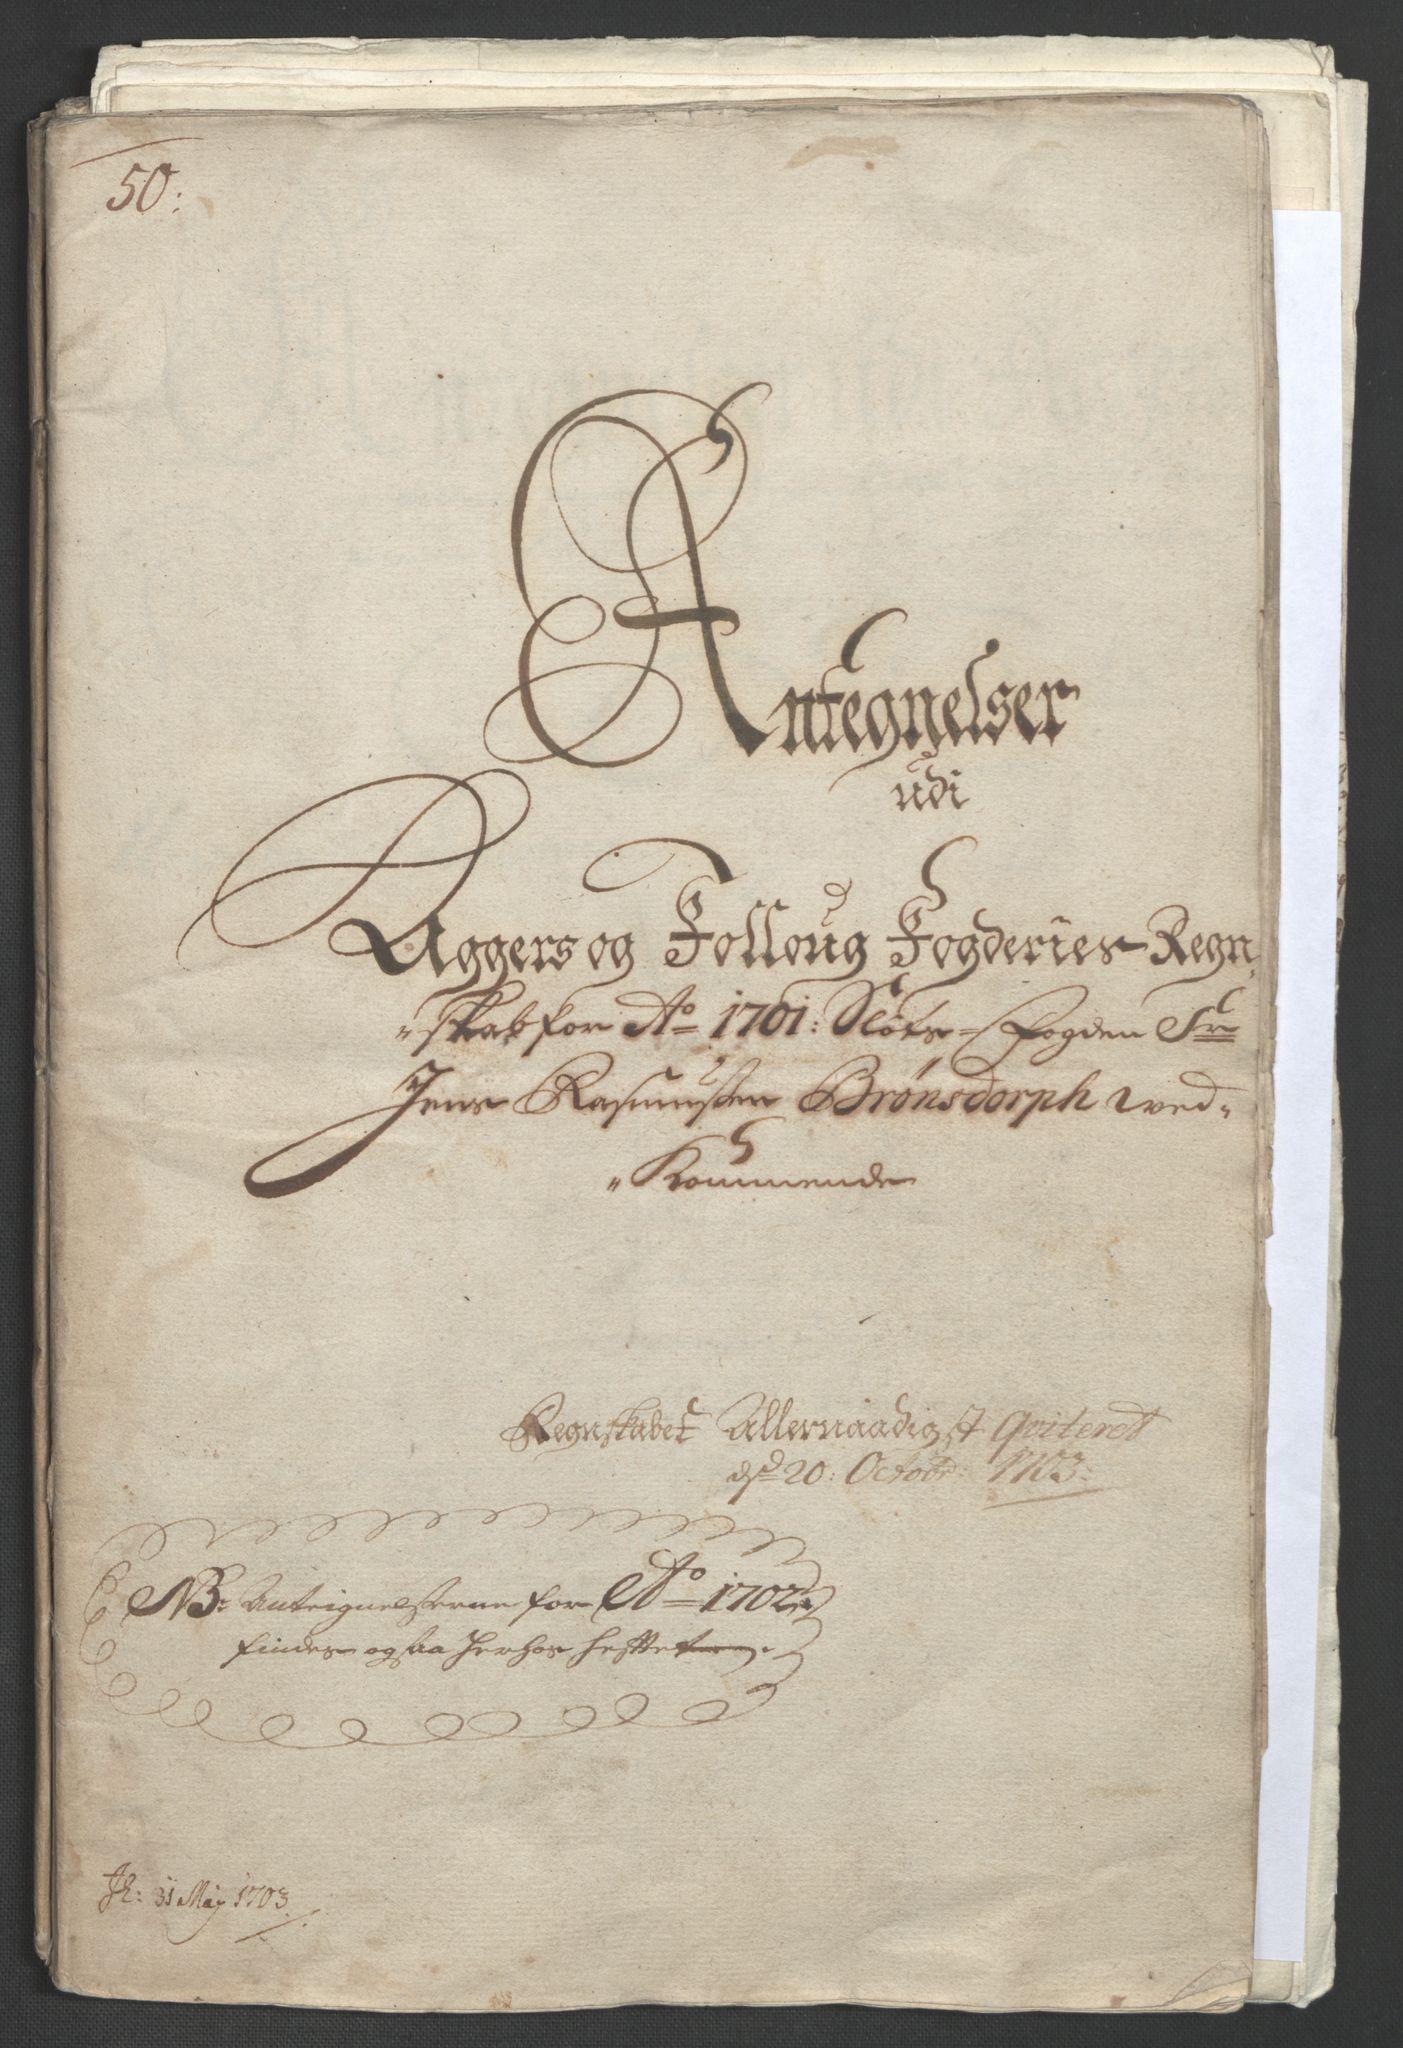 50:
Antegnelser
udi
Aggers og Folloug Fogderies Regn
"skab for Ao 1701: Slots-Fogden Sr
Jens Rasmussen Brønsdorph wed"
"Kommende
Regnskabet Allernaadigst Qviteret
dsd 20: Octobr: 1703:
NB: Anteignelserne for Ao 1702
findes ogsaa herhos heftet
31 May 1703